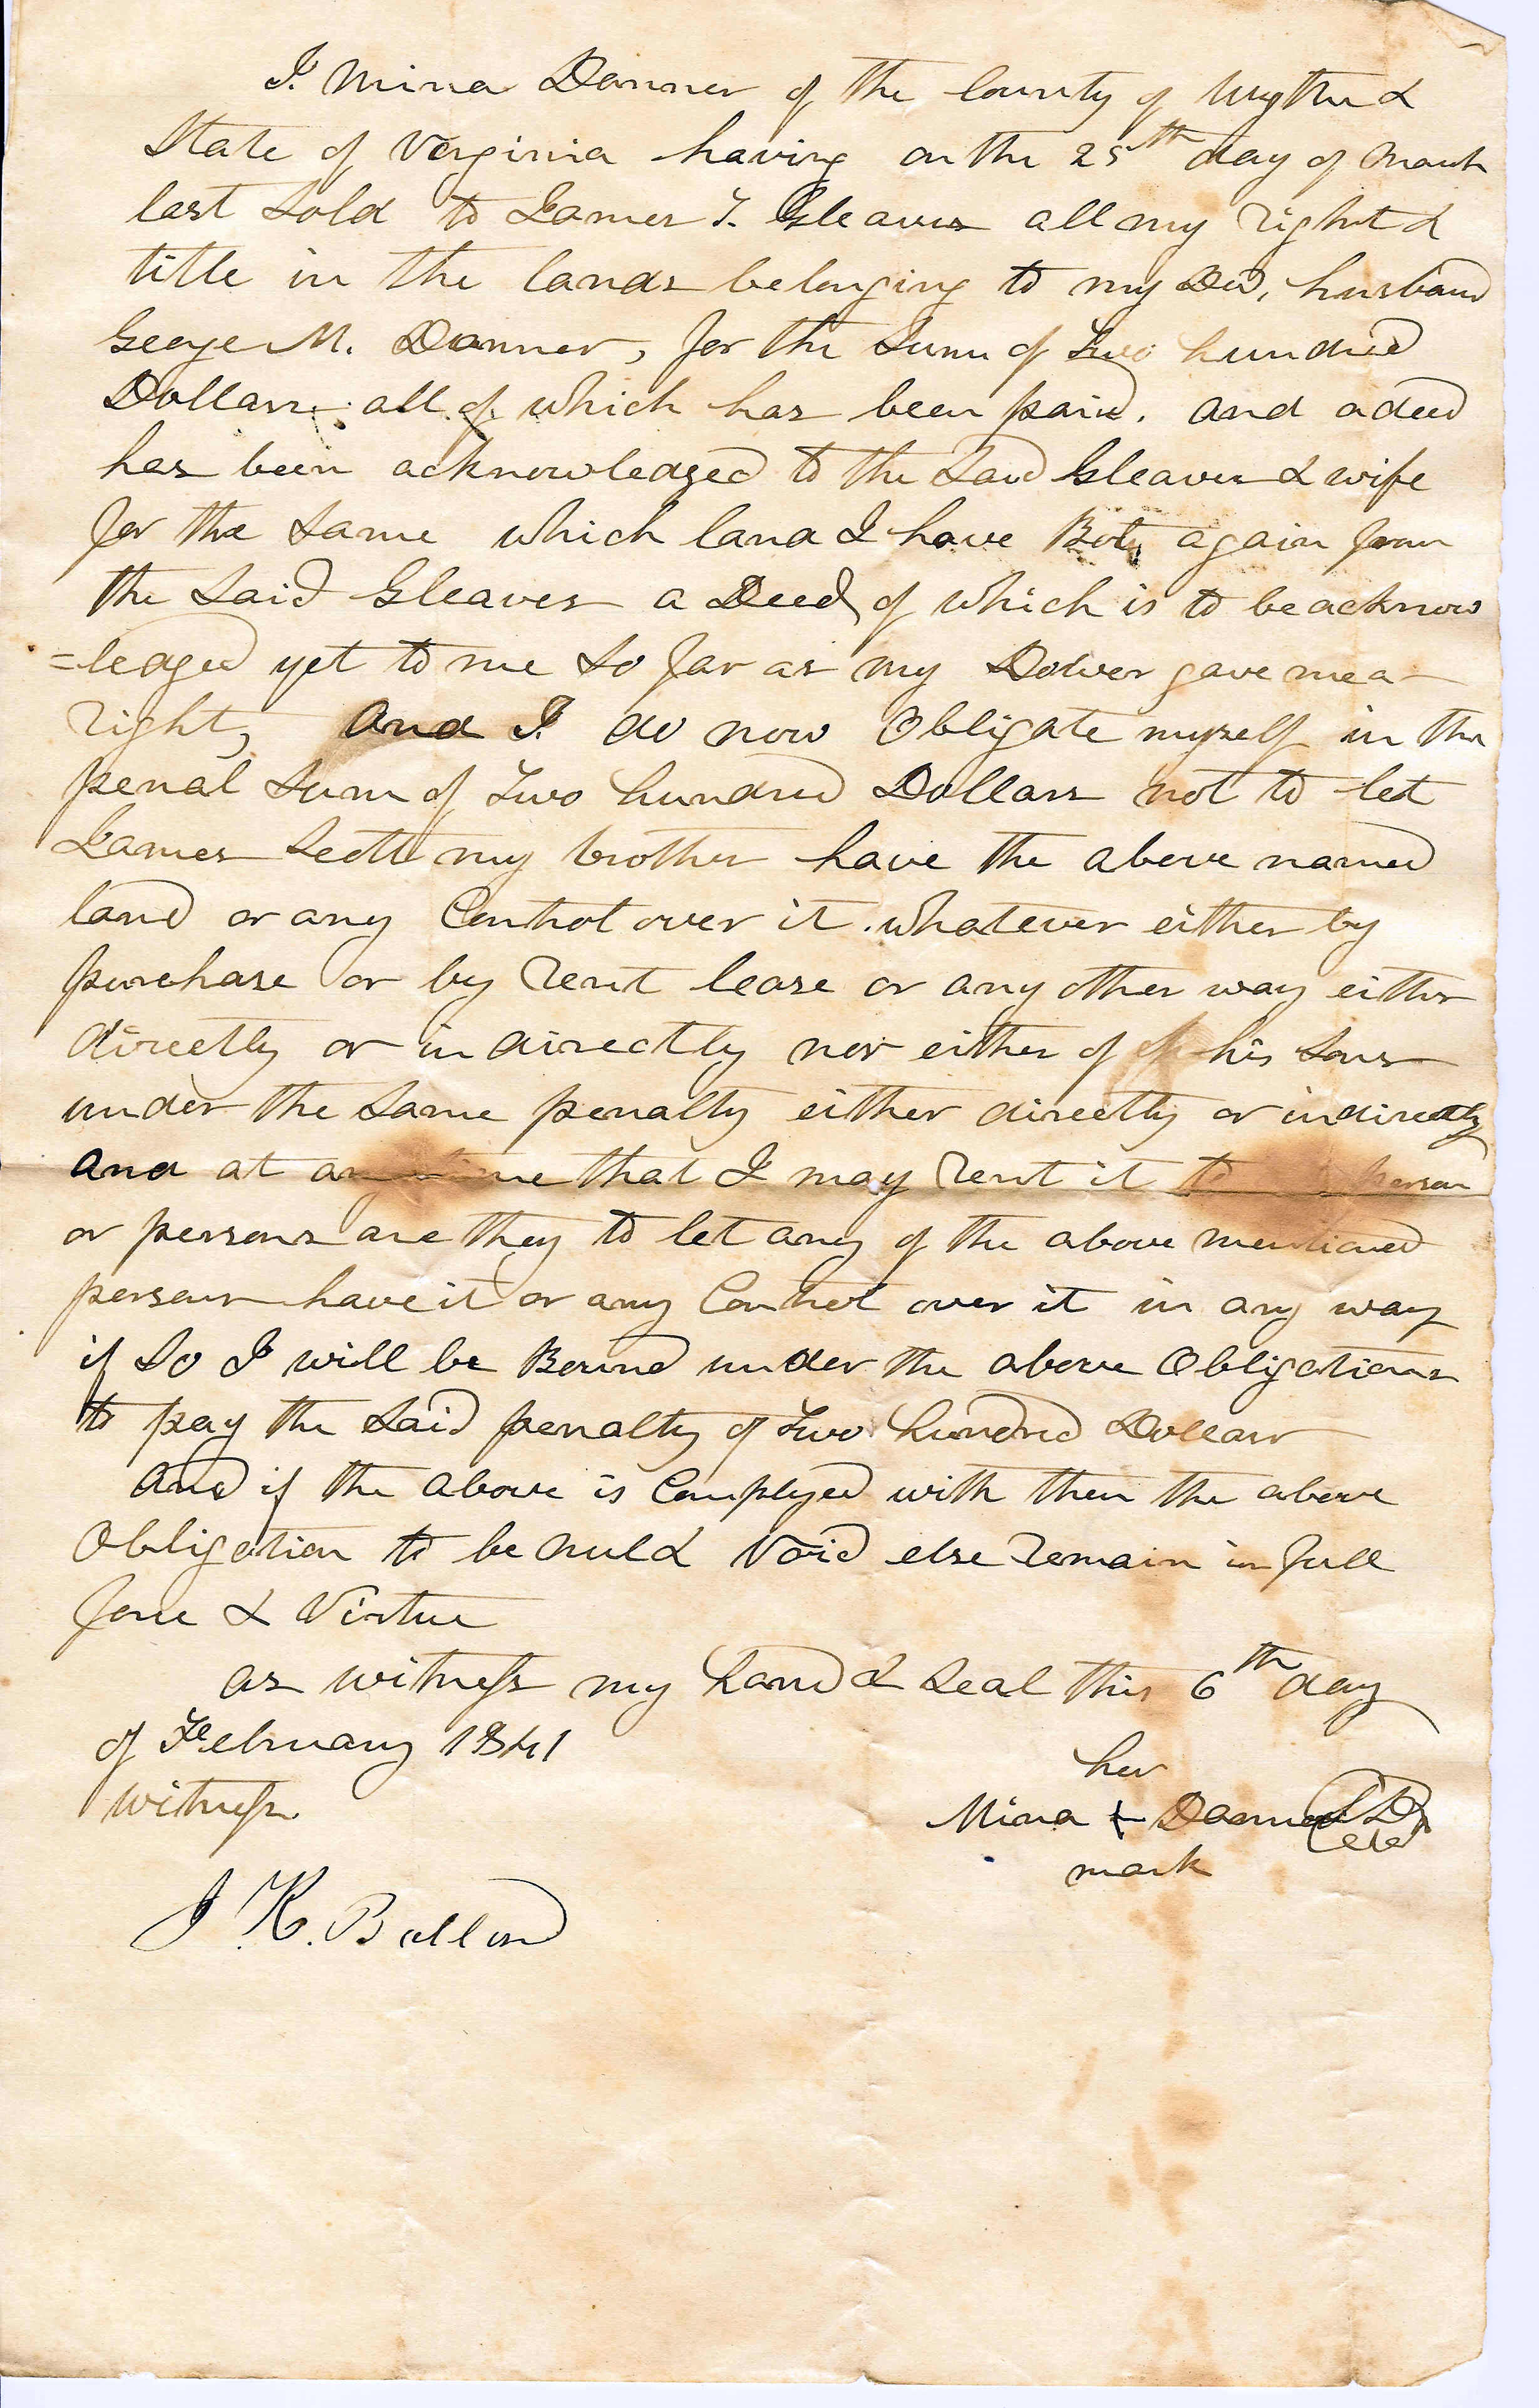 I. Mina Danner of the County of Wythe &
State of Virginia having on the 25th day of March
last Sold to James T. Gleaves all my right &
title in the lands belonging to my Dec'd, husband
George M. Danner, for the Sum of Two hundred
Dollars all of which has been paid. and a deed
has been acknowledged to the Said Gleaves & wife
for the Same which land I have Bot. again from
the Said Gleaves a Deed of which is to be acknow
=ledged yet to me So far as my Dower gave me a
right, And I do now Obligate myself in the
penal Sum of Two hundred Dollars not to let
James Scott my brother have the above named
land or any Control over it. whatever either by
purchase or by Rent lease or any other way either
directly or indirectly nor either of of his Sons
under the Same penalty either directly or indirectly
And at any time that I may Rent it to person
or persons are they to let any of the above mentioned
persons have it or any Control over it in any way
if So I will be Bound under the above Obligations
to pay the Said penalty of Two hundred Dollars
And if the above is Complyed with then the above
Obligation to be null & Void else Remain in full
force & Virtue
as witness my hand & Seal this 6th day
of February 1841
witness
her
Mina + Danner
mark
J K. Ballard